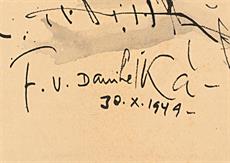 F. V. Daniel Ká-
30.X.1949-